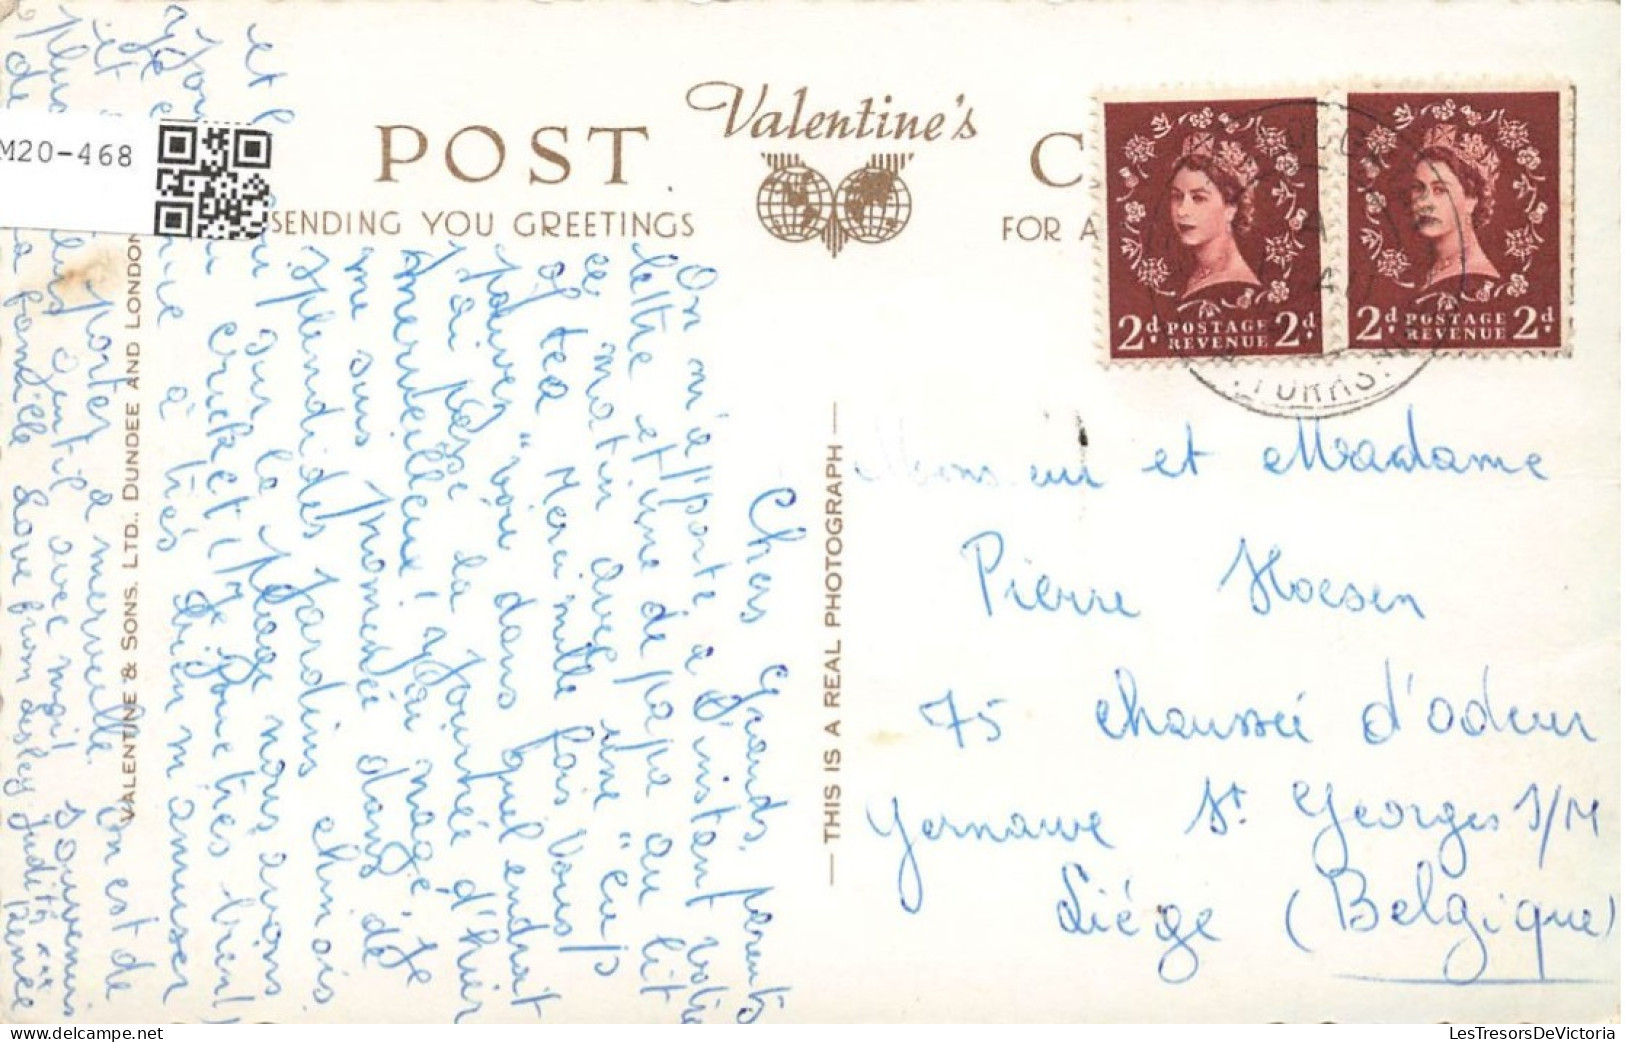 M20-468
POST
Valentine's
C
SENDING YOU GREETINGS
FOR A
2d POSTAGE REVENUE 2d
2d POSTAGE REVENUE 2d
VALENTINE & SONS. LTD., DUNDEE AND LONDON
— THIS IS A REAL PHOTOGRAPH —
Chers Grands-parents
On m'apporte à l'instant votre
lettre et une de papa au lit
ce matin avec une "cup
of tea" Merci mille fois Vous
pouvez voir dans quel endroit
j'ai passé la journée d'hier
merveilleux! J'ai nagé je
me suis promenée dans de
splendides jardins chinois
sur la plage nous avons
cricket (je joue très bien)
à très bien m'amuser
On est de
porter à merveille
gentil avec moi souvenirs
la famille Love from Lesley Judith xxx
Renée
et
plus
de
Monsieur et Madame
Pierre Hoesen
75 chaussée d'odeur
Yernawe St Georges S/M
Liége (Belgique)
LesTresorsDeVictoria